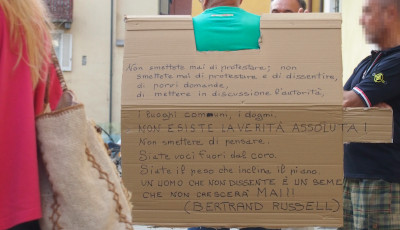 Non smettete mai di protestare; non
smettete mai di protestare e di dissentire,
di porvi domande,
di mettere in discussione l'autorità,
i luoghi comuni, i dogmi.
NON ESISTE LA VERITÀ ASSOLUTA!
Non smettere di pensare.
Siate voci fuori dal coro.
Siate il peso che inclina il piano.
UN UOMO CHE NON DISSENTE È UN SEME
CHE NON CRESCERÀ MAI!!
(BERTRAND RUSSELL)